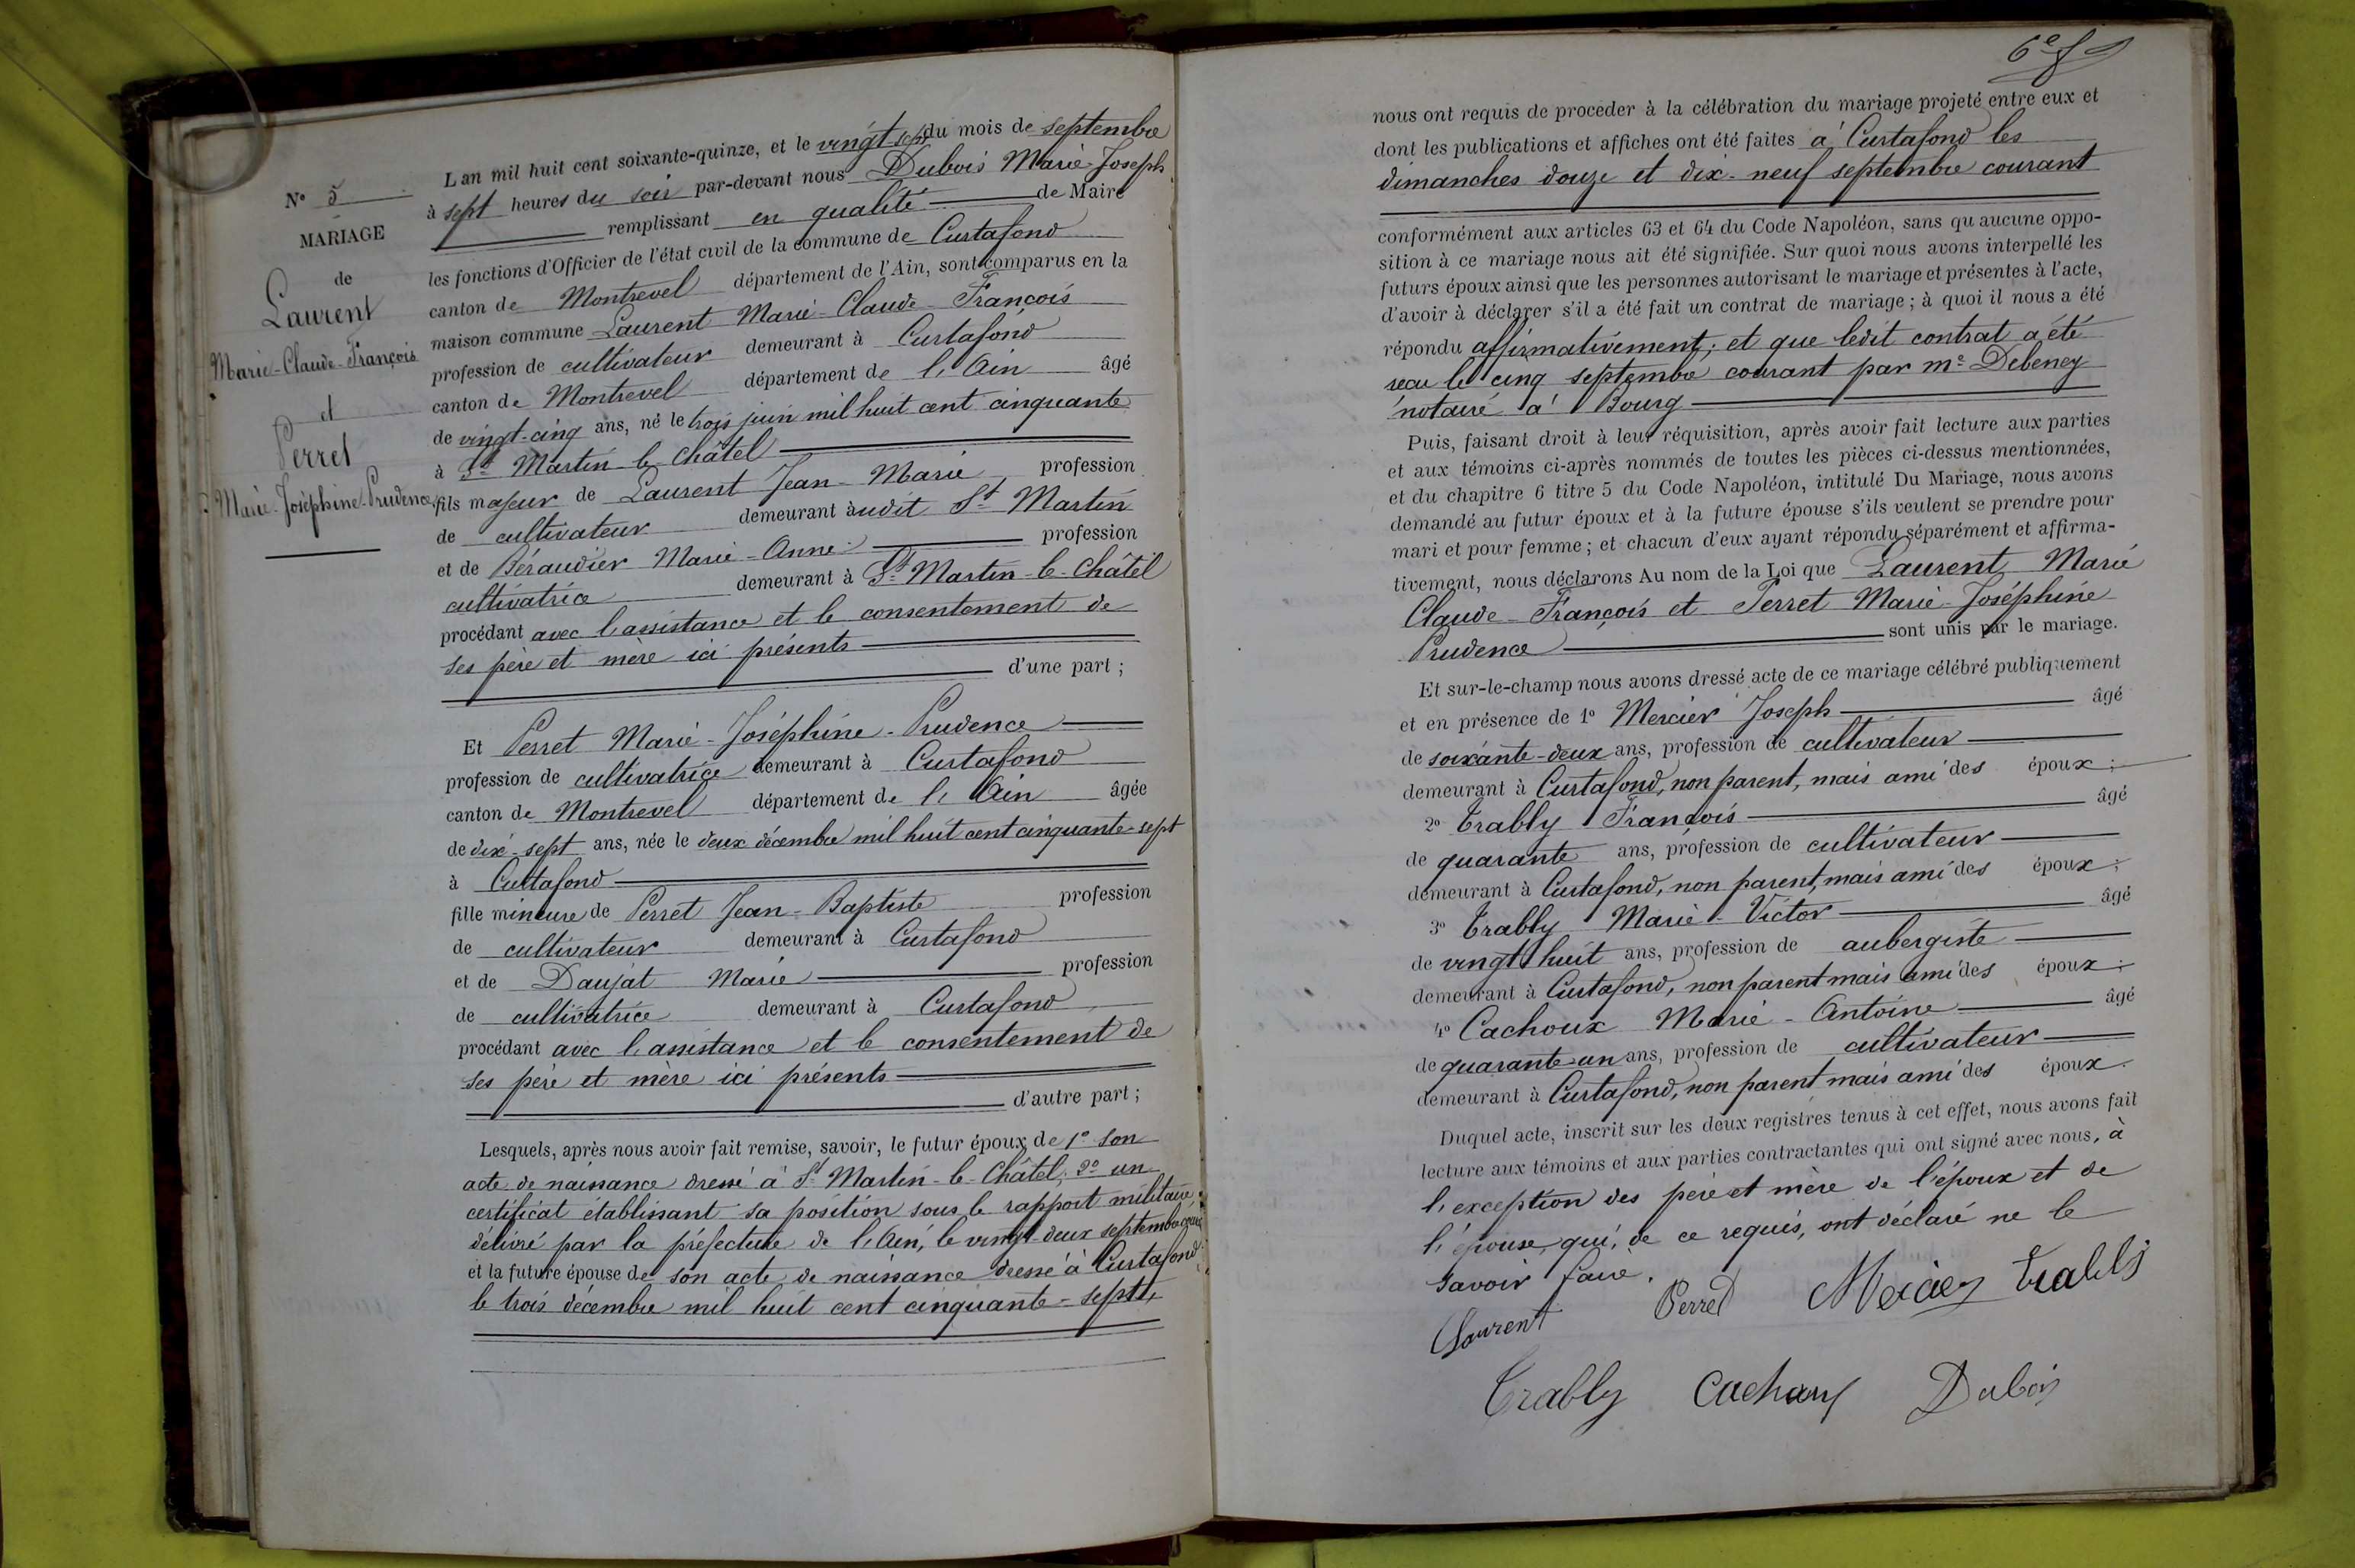 N° 5
MARIAGE
de
Laurent
Marie-Claude-François
et
Perret
Marie-Joséphine-Prudence
L'an mil huit cent soixante-quinze, et le vingt-sept du mois de septembre
à sept heures du soir par-devant nous Dubois Marie-Joseph
remplissant en qualité de Maire
les fonctions d'Officier de l'état civil de la commune de Curtafond
canton de Montrevel département de l'Ain, sont comparus en la
maison commune Laurent Marie-Claude-François
profession de cultivateur demeurant à Curtafond
canton de Montrevel département de l'Ain âgé
de vingt-cinq ans, né le trois juin mil huit cent cinquante
à St Martin-le-Châtel
fils majeur de Laurent Jean-Marie profession
de cultivateur demeurant audit St Martin
et de Béraudier Marie-Anne profession
cultivatrice demeurant à St Martin-le-Châtel
procédant avec l'assistance et le consentement de
ses père et mère ici présents
d'une part ;
Et Perret Marie-Joséphine-Prudence
profession de cultivatrice demeurant à Curtafond
canton de Montrevel département de l'Ain âgée
de dix-sept ans, née le deux décembre mil huit cent cinquante-sept
à Curtafond
fille mineure de Perret Jean-Baptiste profession
de cultivateur demeurant à Curtafond
et de Daujat Marie profession
de cultivatrice demeurant à Curtafond
procédant avec l'assistance et le consentement de
ses père et mère ici présents
d'autre part ;
Lesquels, après nous avoir fait remise, savoir, le futur époux de 1° son
acte de naissance dressé à St Martin-le-Châtel; 2° un
certificat établissant sa position sous le rapport militaire,
délivré par la préfecture de l'Ain, le vingt-deux septembre
et la future épouse de son acte de naissance dressé à Curtafond
le trois décembre mil huit cent cinquante-sept
6e f
nous ont requis de procéder à la célébration du mariage projeté entre eux et
dont les publications et affiches ont été faites à Curtafond les
dimanches douze et dix-neuf septembre courant
conformément aux articles 63 et 64 du Code Napoléon, sans qu'aucune oppo-
sition à ce mariage nous ait été signifiée. Sur quoi nous avons interpellé les
futurs époux ainsi que les personnes autorisant le mariage et présentes à l'acte,
d'avoir à déclarer s'il a été fait un contrat de mariage ; à quoi il nous a été
répondu affirmativement; et que ledit contrat a été
reçu le cinq septembre courant par me Debeney
notaire à Bourg
Puis, faisant droit à leur réquisition, après avoir fait lecture aux parties
et aux témoins ci-après nommés de toutes les pièces ci-dessus mentionnées,
et du chapitre 6 titre 5 du Code Napoléon, intitulé Du Mariage, nous avons
demandé au futur époux et à la future épouse s'ils veulent se prendre pour
mari et pour femme ; et chacun d'eux ayant répondu séparément et affirma-
tivement, nous déclarons Au nom de la Loi que Laurent Marie
Claude-François et Perret Marie-Joséphine
Prudence sont unis par le mariage.
Et sur-le-champ nous avons dressé acte de ce mariage célébré publiquement
et en présence de 1° Mercier Joseph âgé
de soixante-deux ans, profession de cultivateur
demeurant à Curtafond, non parent, mais ami des époux ;
2° Trably François âgé
de quarante ans, profession de cultivateur
demeurant à Curtafond, non parent, mais ami des époux ;
3° Trably Marie-Victor âgé
de vingt huit ans, profession de aubergiste
demeurant à Curtafond, non parent mais ami des époux ;
4° Cachoux Marie-Antoine âgé
de quarante-un ans, profession de cultivateur
demeurant à Curtafond, non parent mais ami des époux.
Duquel acte, inscrit sur les deux registres tenus à cet effet, nous avons fait
lecture aux témoins et aux parties contractantes qui ont signé avec nous, à
l'exception des père et mère de l'époux et de
l'épouse, qui, de ce requis, ont déclaré ne le
savoir faire.
Laurent Perret Mercier Trably
Trably Cachoux Dubois